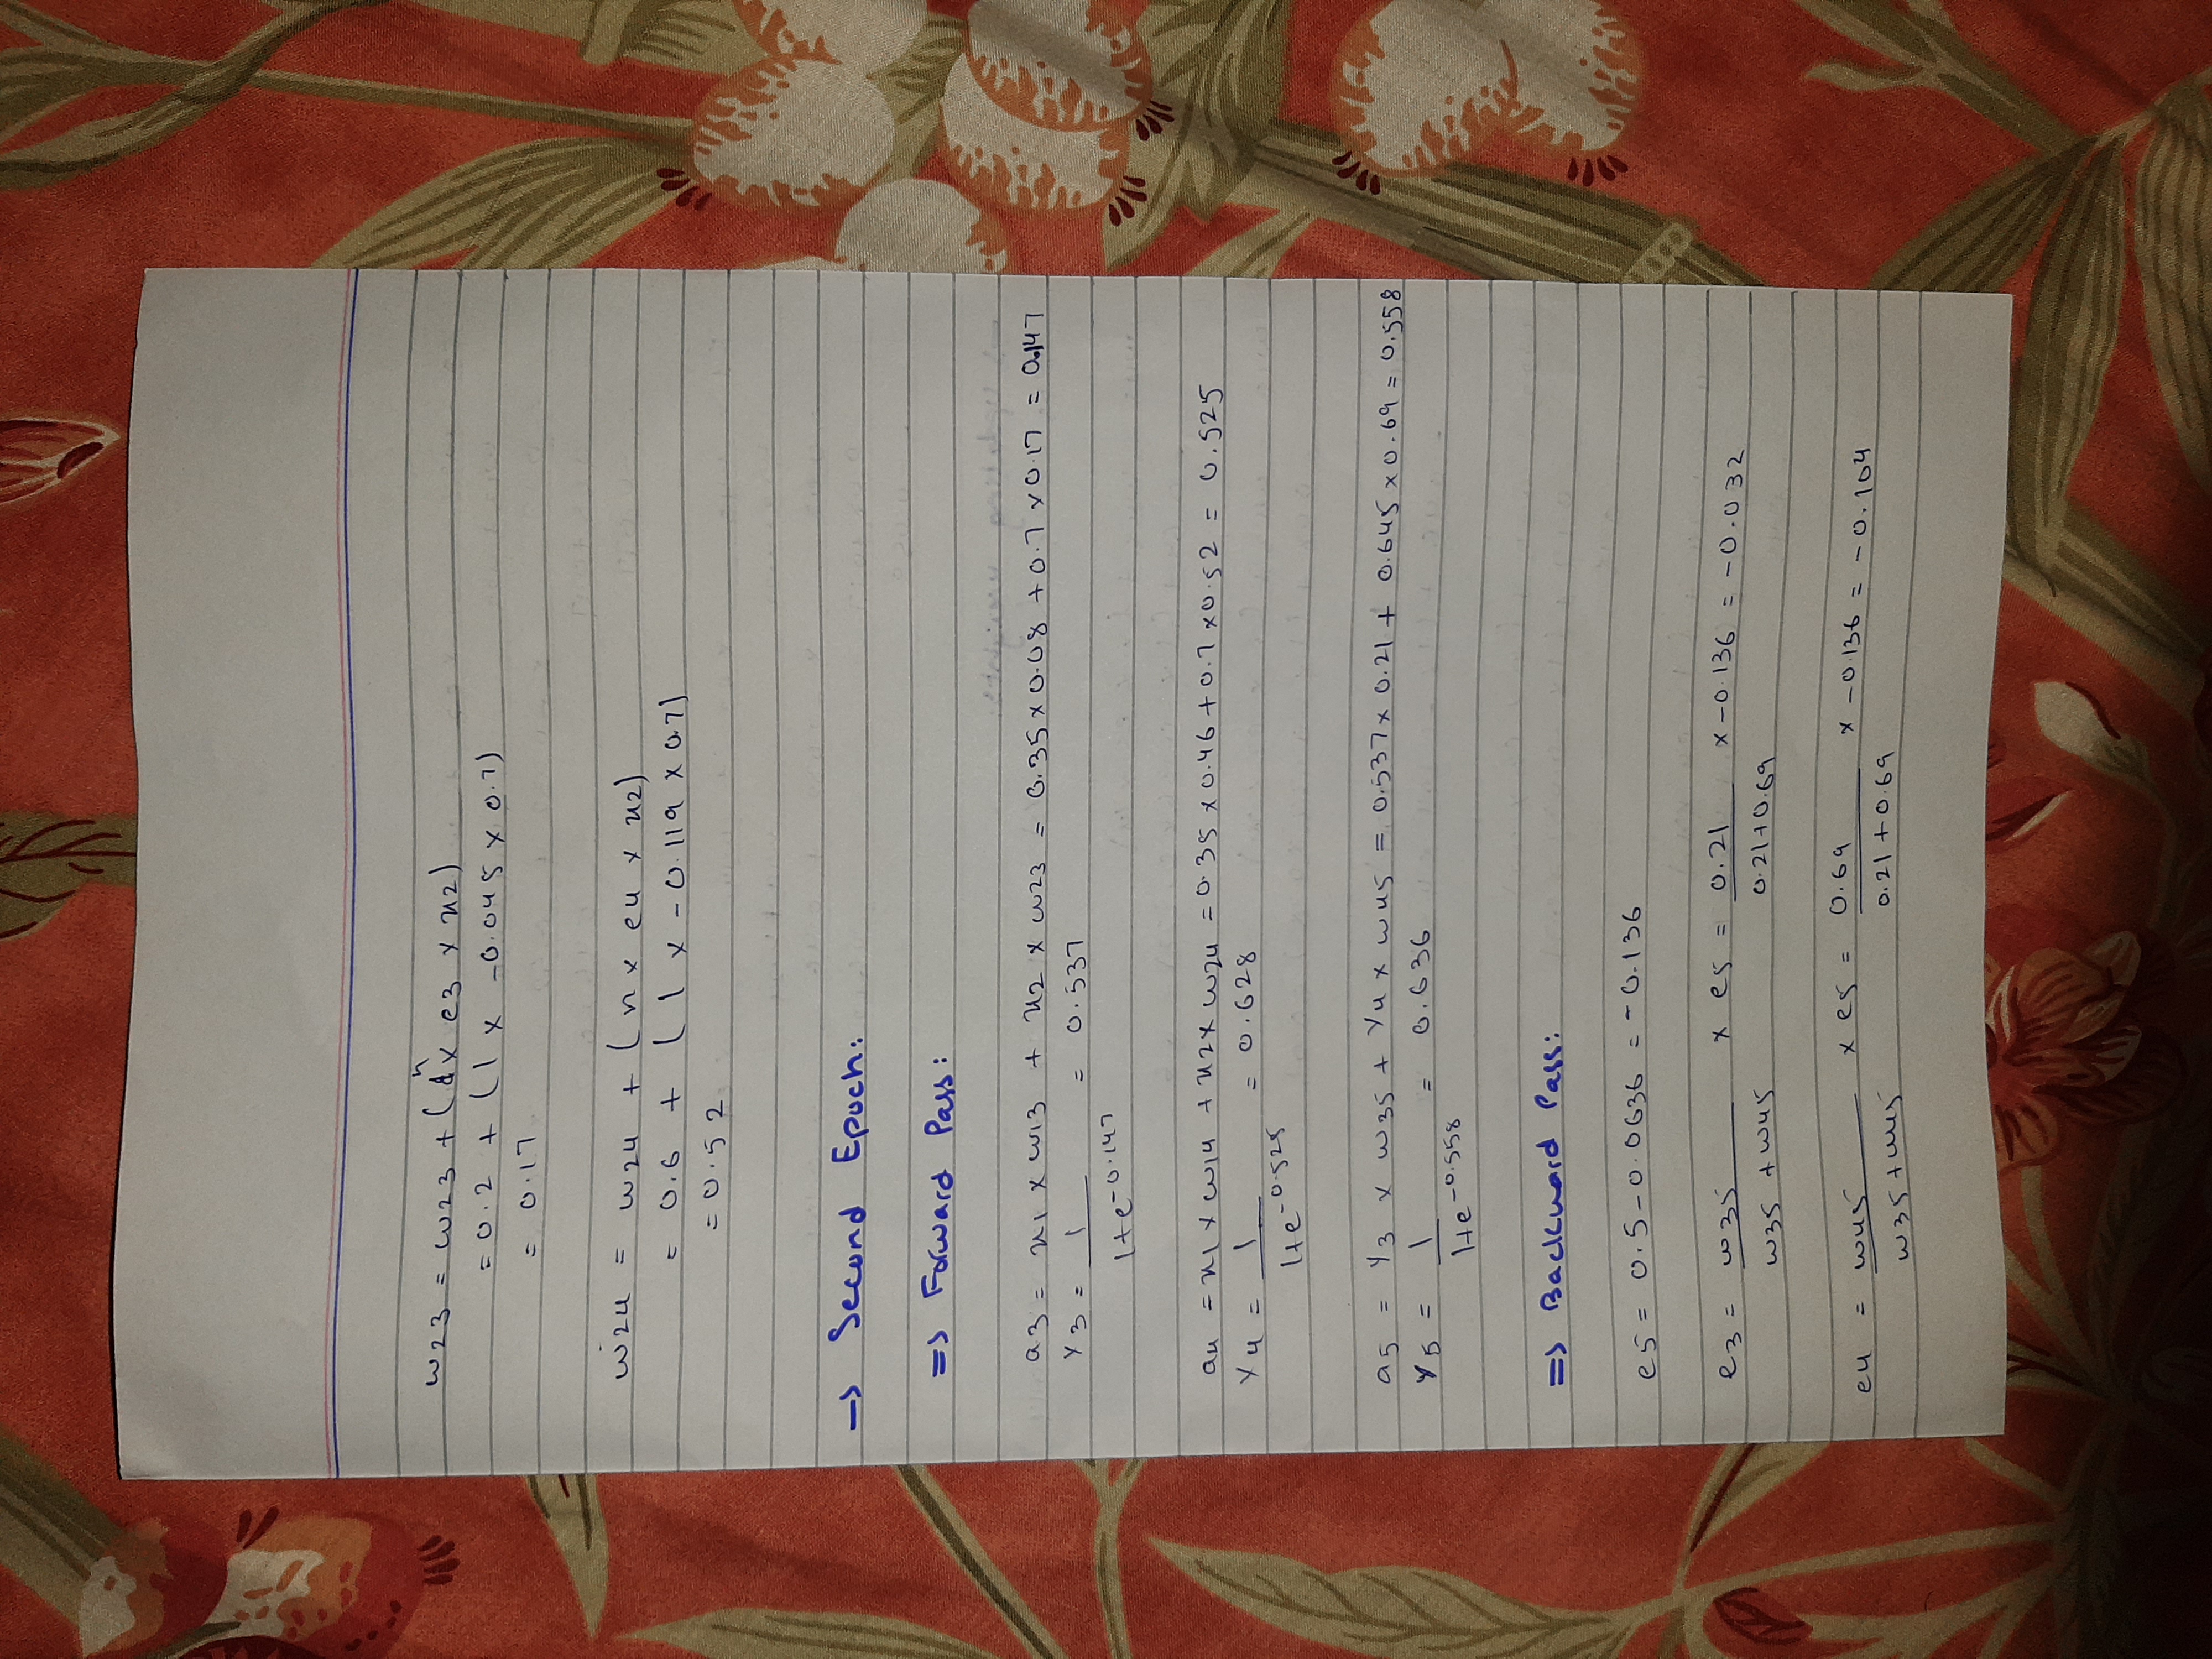 w23 = w23 + (n x e3 x x2)
= 0.2 + (1 x -0.045 x 0.7)
= 0.17
w24 = w24 + (n x e4 x x2)
= 0.6 + (1 x -0.119 x 0.7)
= 0.52
→ Second Epoch:
⇒ Forward Pass:
a3 = x1 x w13 + x2 x w23 = 0.35 x 0.08 + 0.7 x 0.17 = 0.147
y3 = 1/(1+e^-0.147) = 0.537
a4 = x1 x w14 + x2 x w24 = 0.35 x 0.46 + 0.7 x 0.52 = 0.525
y4 = 1/(1+e^-0.525) = 0.628
a5 = y3 x w35 + y4 x w45 = 0.537 x 0.21 + 0.645 x 0.69 = 0.558
y5 = 1/(1+e^-0.558) = 0.636
⇒ Backward Pass:
e5 = 0.5 - 0.0636 = -0.136
e3 = w35/(w35 + w45) x e5 = 0.21/(0.21+0.69) x -0.136 = -0.032
e4 = w45/(w35 + w45) x e5 = 0.69/(0.21+0.69) x -0.136 = -0.104